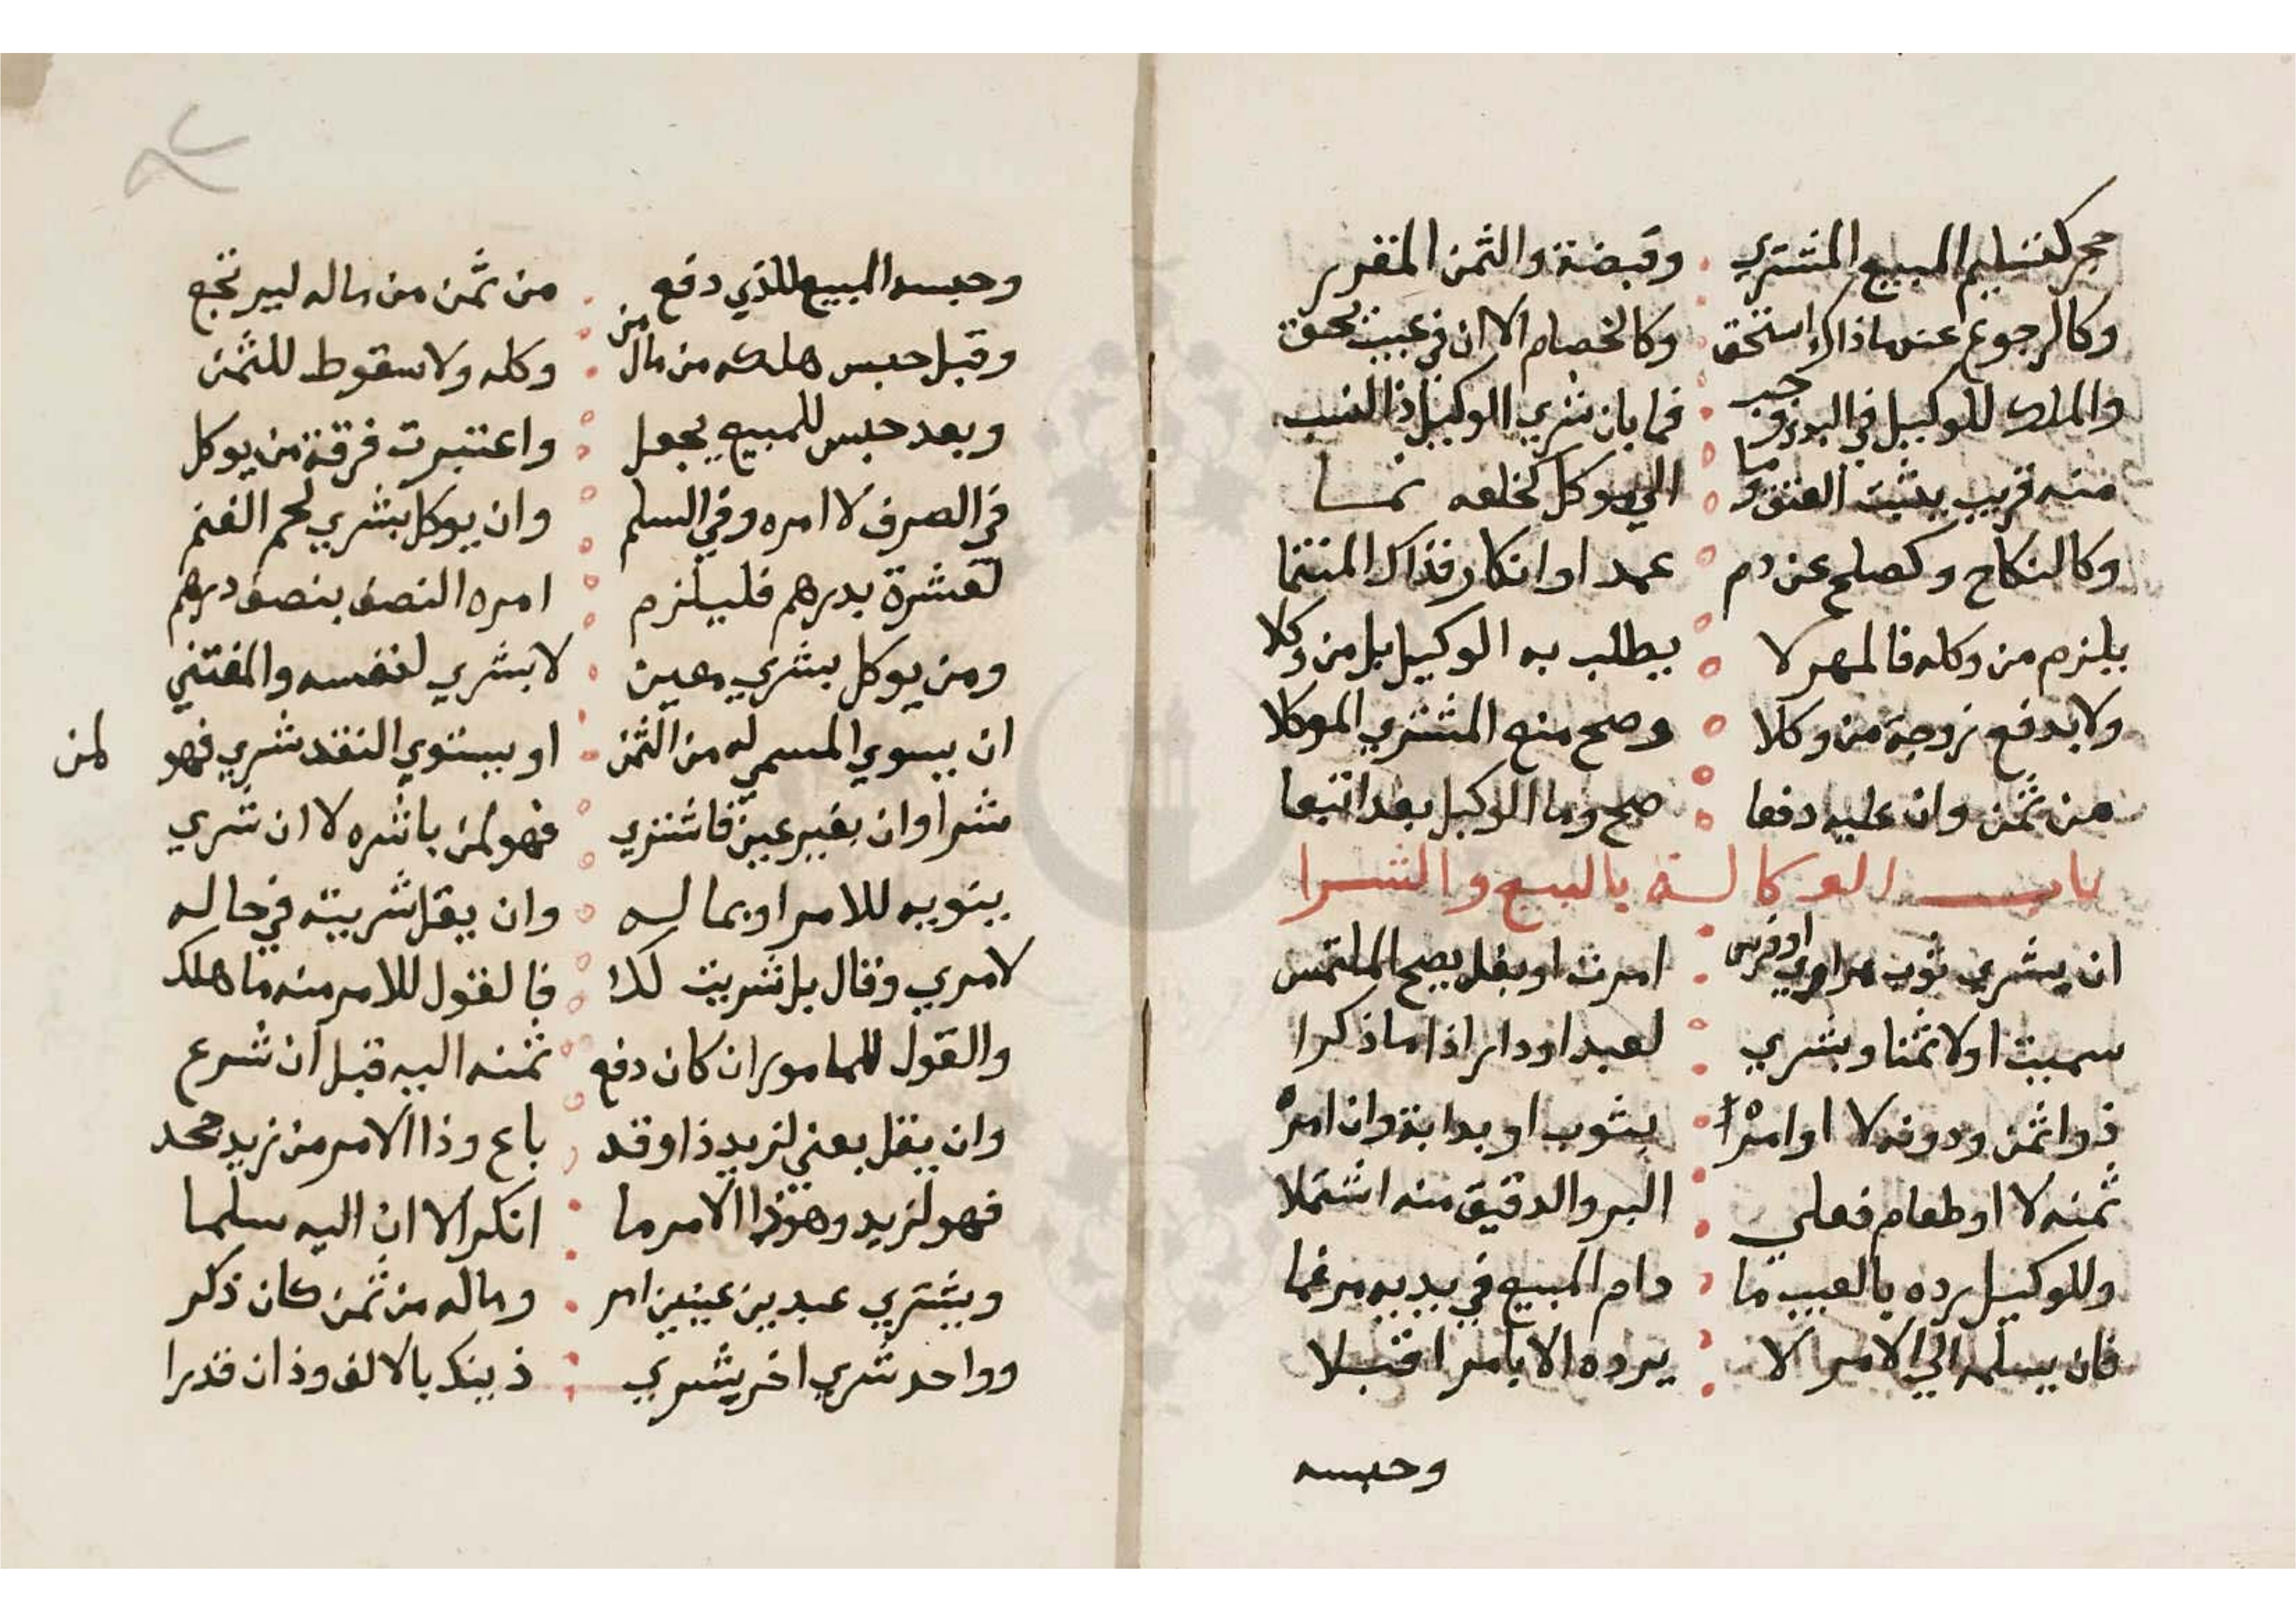 حجر كتسليم المبيع المشتري وقبضة والثمن المقرر
وكالرجوع عند ما ذاك استحق وكالخصام الا ان في عيب يحق
والملك للوكيل في البدء وجب فما بان شري الوكيل ذا النسب
منه قريب يثبت العتق وما الي موكل كخلعه نما
وكالنكاح وكصلح عن دم عمد او انكار فذاك المنتما
يلزم من وكله فالمهر لا يطلب به الوكيل بل من وكلا
ولا بدفع زوجة من وكلا وصح منع المشتري الموكلا
من ثمن وان عليه دفعا صح وما الوكيل بعد اتبعا
باب الوكالة بالبيع والشرا
ان يشري ثوب هراوي او فرس امرت او بغل يصح الملتمس
سميت اولا ثمنا وبشري لعبد او دار اذا ما ذكرا
ذوا ثمن ودونه لا او امرا بثوب او بدابة وان امره
ثمنه لا او طعام فعلي البر والدقيق منه اشتملا
وللوكيل رده بالعيب ما دام المبيع في يديه مرغما
فان يسلمه الي الامر لا يرده الا بامر اقبلا
وحبسه
وحبسه المبيع للذي دفع من ثمن من ماله ليرتجع
وقبل حبس هلكه من مال من وكله ولا سقوط للثمن
وبعد حبس للمبيع يجعل واعتبرت فرقة من يوكل
في الصرف لا امره وفي السلم وان يوكل بشري لحم الغنم
لعشرة بدرهم فليلزم امره النصف بنصف درهم
ومن يوكل بشري معين لا يشري لنفسه والمقتني
ان يسوي المسمي له من الثمن او يستوي النقد شري فهو لمن
شرا وان بغير عين فاشتري فهو لمن باشره لا ان شري
ينويه للامر او بماله وان يقل شريته في حاله
لامري وقال بل شريت لك فالقول للامر منه ما هلك
والقول للمامور ان كان دفع ثمنه اليه قبل ان شرع
وان يقل بعني لزيد ذا وقد باع وذا الامر من زيد جحد
فهو لزيد وهو ذا الامر ما انكر الا ان اليه سلما
ويشتري عبدين عينين امر وماله من ثمن كان ذكر
وواحد شري اخر يشري ذينك بالالف وذان قدرا